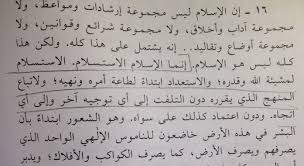 ١٦ - إن الإسلام ليس مجموعة إرشادات ومواعظ، ولا
مجموعة آداب وأخلاق، ولا مجموعة شرائع وقوانين، ولا
مجموعة أوضاع وتقاليد.. إنه يشتمل على هذا كله. ولكن هذا
كله ليس هو الإسلام. إنما الإسلام الاستسلام. الاستسلام
لمشيئة الله وقدره؛ والاستعداد ابتداءً لطاعة أمره ونهيه؛ ولاتباع
المنهج الذي يقرره دون التلفت إلى أي توجيه آخر وإلى أي
اتجاه. ودون اعتماد كذلك على سواه. وهو الشعور ابتداءً بأن
البشر في هذه الأرض خاضعون للناموس الإلهي الواحد الذي
يصرفهم ويصرف الأرض، كما يصرف الكواكب والأفلاك؛ ويدبر